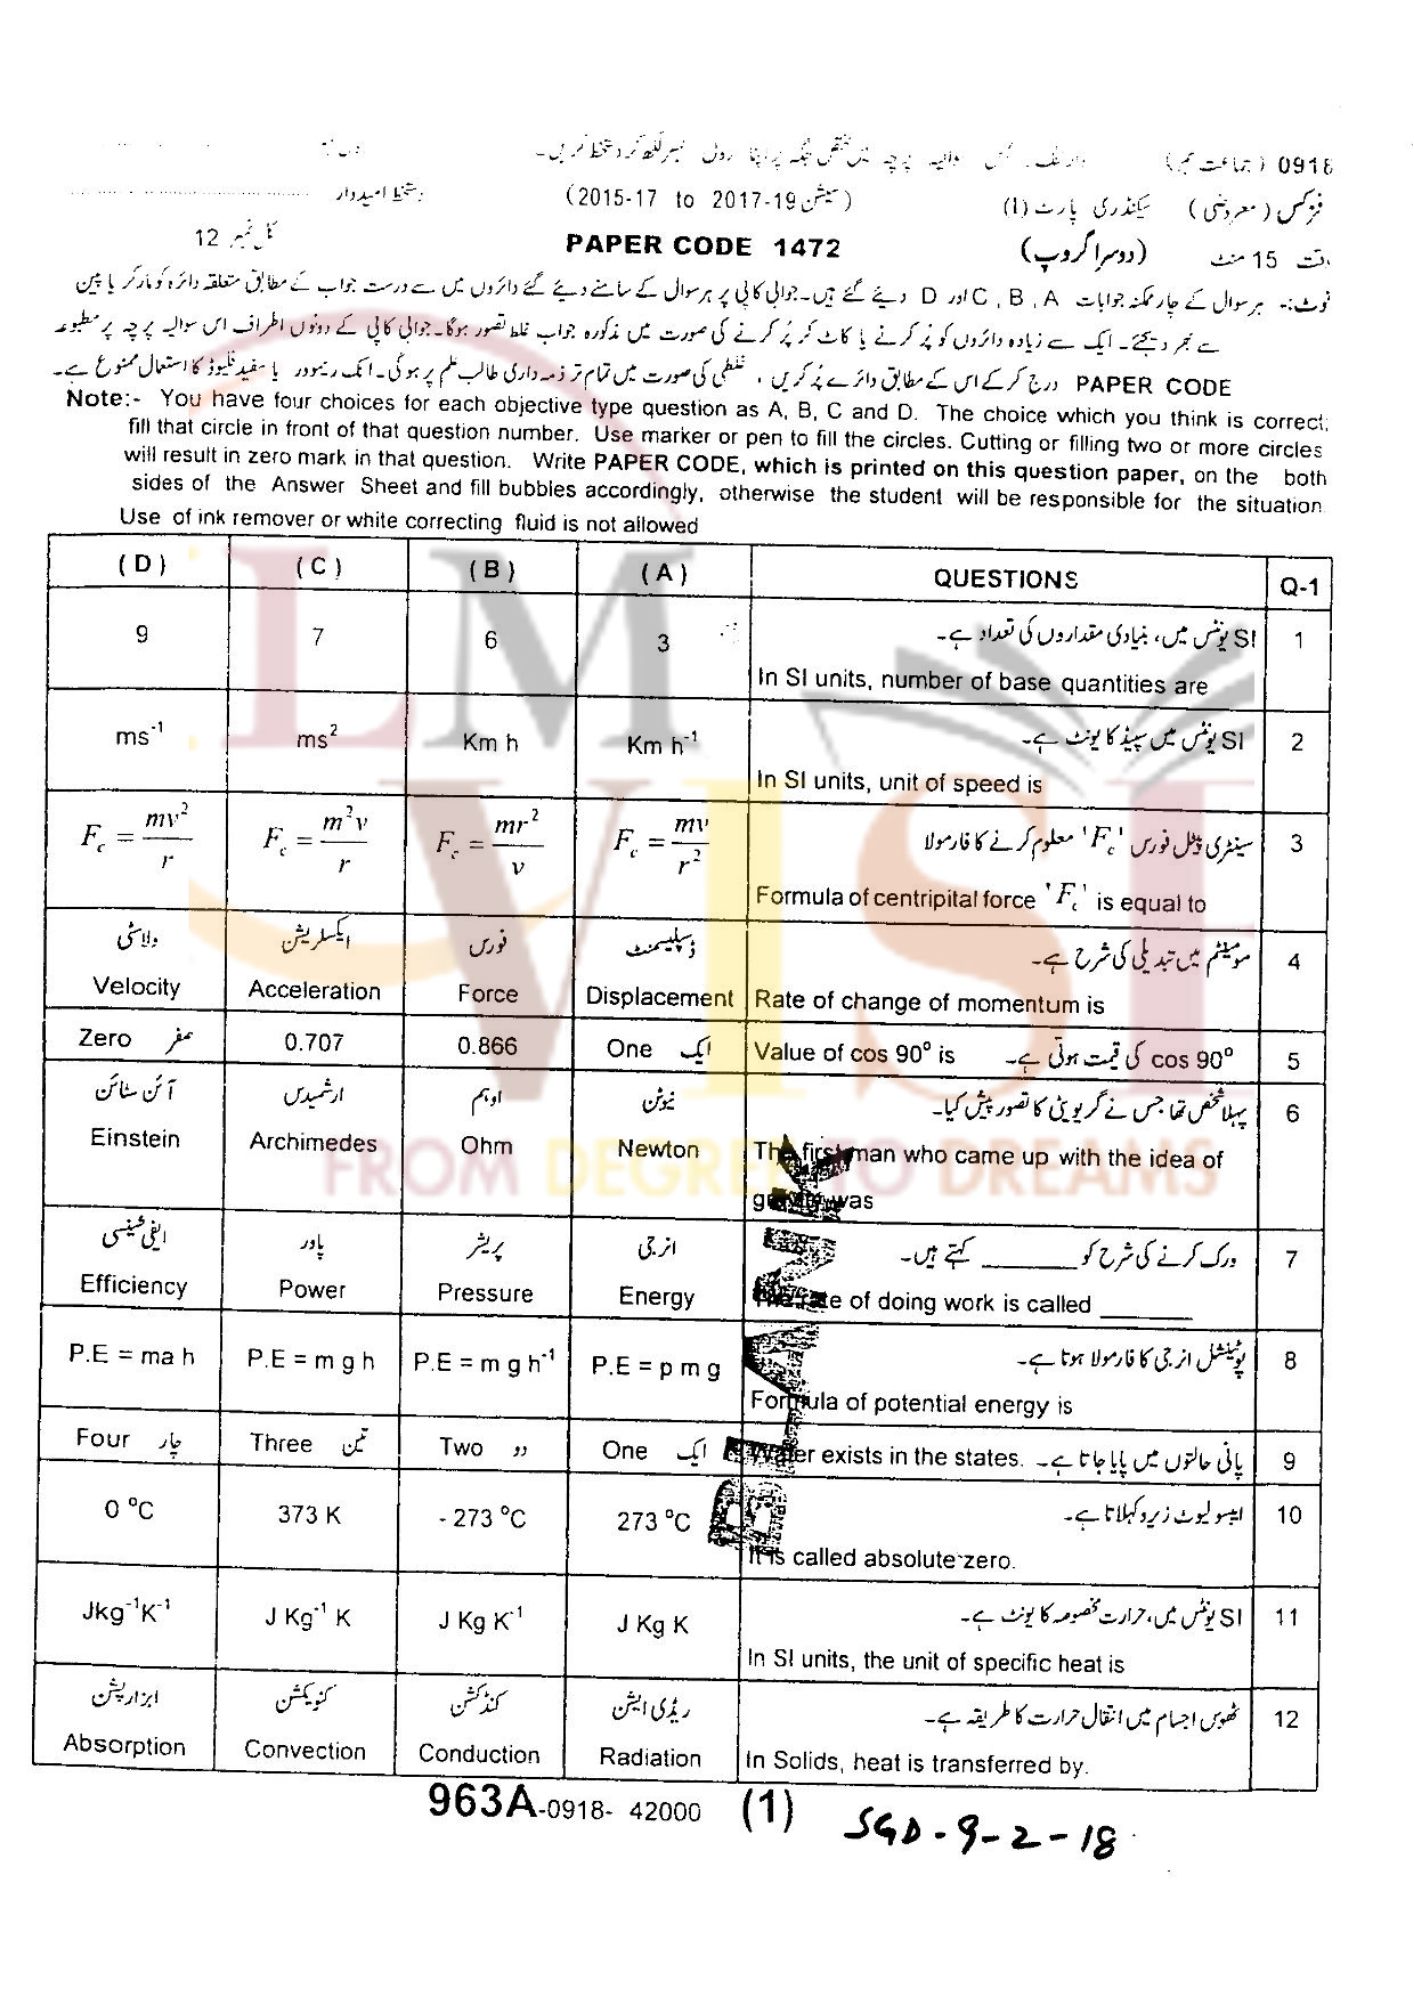 0918 (جماعت نہم)
فزکس (معروضی) سیکنڈری پارٹ (I) (سیشن 2015-17 to 2017-19) دستخط امیدوار
وقت 15 منٹ (دوسرا گروپ) PAPER CODE 1472 کل نمبر 12
نوٹ:- ہر سوال کے چار ممکنہ جوابات A ، B ، C اور D دیئے گئے ہیں۔ جوابی کاپی پر ہر سوال کے سامنے دیئے گئے دائروں میں سے درست جواب کے مطابق متعلقہ دائرہ کو مارکر یا پین
سے بھر دیجئے۔ ایک سے زیادہ دائروں کو پُر کرنے یا کاٹ کر پُر کرنے کی صورت میں مذکورہ جواب غلط تصور ہوگا۔ جوابی کاپی کے دونوں اطراف اس سوالیہ پرچہ پر مطبوعہ
PAPER CODE درج کر کے اس کے مطابق دائرے پُر کریں ، غلطی کی صورت میں تمام تر ذمہ داری طالب علم پر ہوگی۔ انک ریموور یا سفید فلیوڈ کا استعمال ممنوع ہے۔
Note:- You have four choices for each objective type question as A, B, C and D. The choice which you think is correct;
fill that circle in front of that question number. Use marker or pen to fill the circles. Cutting or filling two or more circles
will result in zero mark in that question. Write PAPER CODE, which is printed on this question paper, on the both
sides of the Answer Sheet and fill bubbles accordingly, otherwise the student will be responsible for the situation
Use of ink remover or white correcting fluid is not allowed
( D ) ( C ) ( B ) ( A ) QUESTIONS Q-1
SI یونٹس میں، بنیادی مقداروں کی تعداد ہے۔
9 7 6 3 1
In SI units, number of base quantities are
SI یونٹس میں سپیڈ کا یونٹ ہے۔
ms⁻¹ ms² Km h Km h⁻¹ 2
In SI units, unit of speed is
سینٹری پیٹل فورس 'F_c' معلوم کرنے کا فارمولا
F_c = mv²/r F_c = m²v/r F_c = mr²/v F_c = mv/r² 3
Formula of centripital force 'F_c' is equal to
ولاسٹی ایکسلریشن فورس ڈسپلیسمنٹ مومینٹم میں تبدیلی کی شرح ہے۔ 4
Velocity Acceleration Force Displacement Rate of change of momentum is
Zero صفر 0.707 0.866 One ایک Value of cos 90º is cos 90º کی قیمت ہوتی ہے۔ 5
آئن سٹائن ارشمیدس اوہم نیوٹن پہلا شخص تھا جس نے گریویٹی کا تصور پیش کیا۔ 6
Einstein Archimedes Ohm Newton The first man who came up with the idea of
gravity was
ایفی شینسی پاور پریشر انرجی ورک کرنے کی شرح کو ______ کہتے ہیں۔ 7
Efficiency Power Pressure Energy The rate of doing work is called ______
پوٹینشل انرجی کا فارمولا ہوتا ہے۔ 8
P.E = ma h P.E = m g h P.E = m g h⁻¹ P.E = p m g
Formula of potential energy is
Four چار Three تین Two دو One ایک Water exists in the states. پانی حالتوں میں پایا جاتا ہے۔ 9
ایبسولیوٹ زیرو کہلاتا ہے۔ 10
0 ºC 373 K - 273 ºC 273 ºC
It is called absolute zero.
SI یونٹس میں، حرارت مخصوصہ کا یونٹ ہے۔ 11
Jkg⁻¹K⁻¹ J Kg⁻¹ K J Kg K⁻¹ J Kg K
In SI units, the unit of specific heat is
ابزارپشن کنویکشن کنڈکشن ریڈی ایشن ٹھوس اجسام میں انتقال حرارت کا طریقہ ہے۔ 12
Absorption Convection Conduction Radiation In Solids, heat is transferred by.
963A-0918- 42000 (1) SGD-9-2-18
LM
VISI
FROM DEGREE TO DREAMS